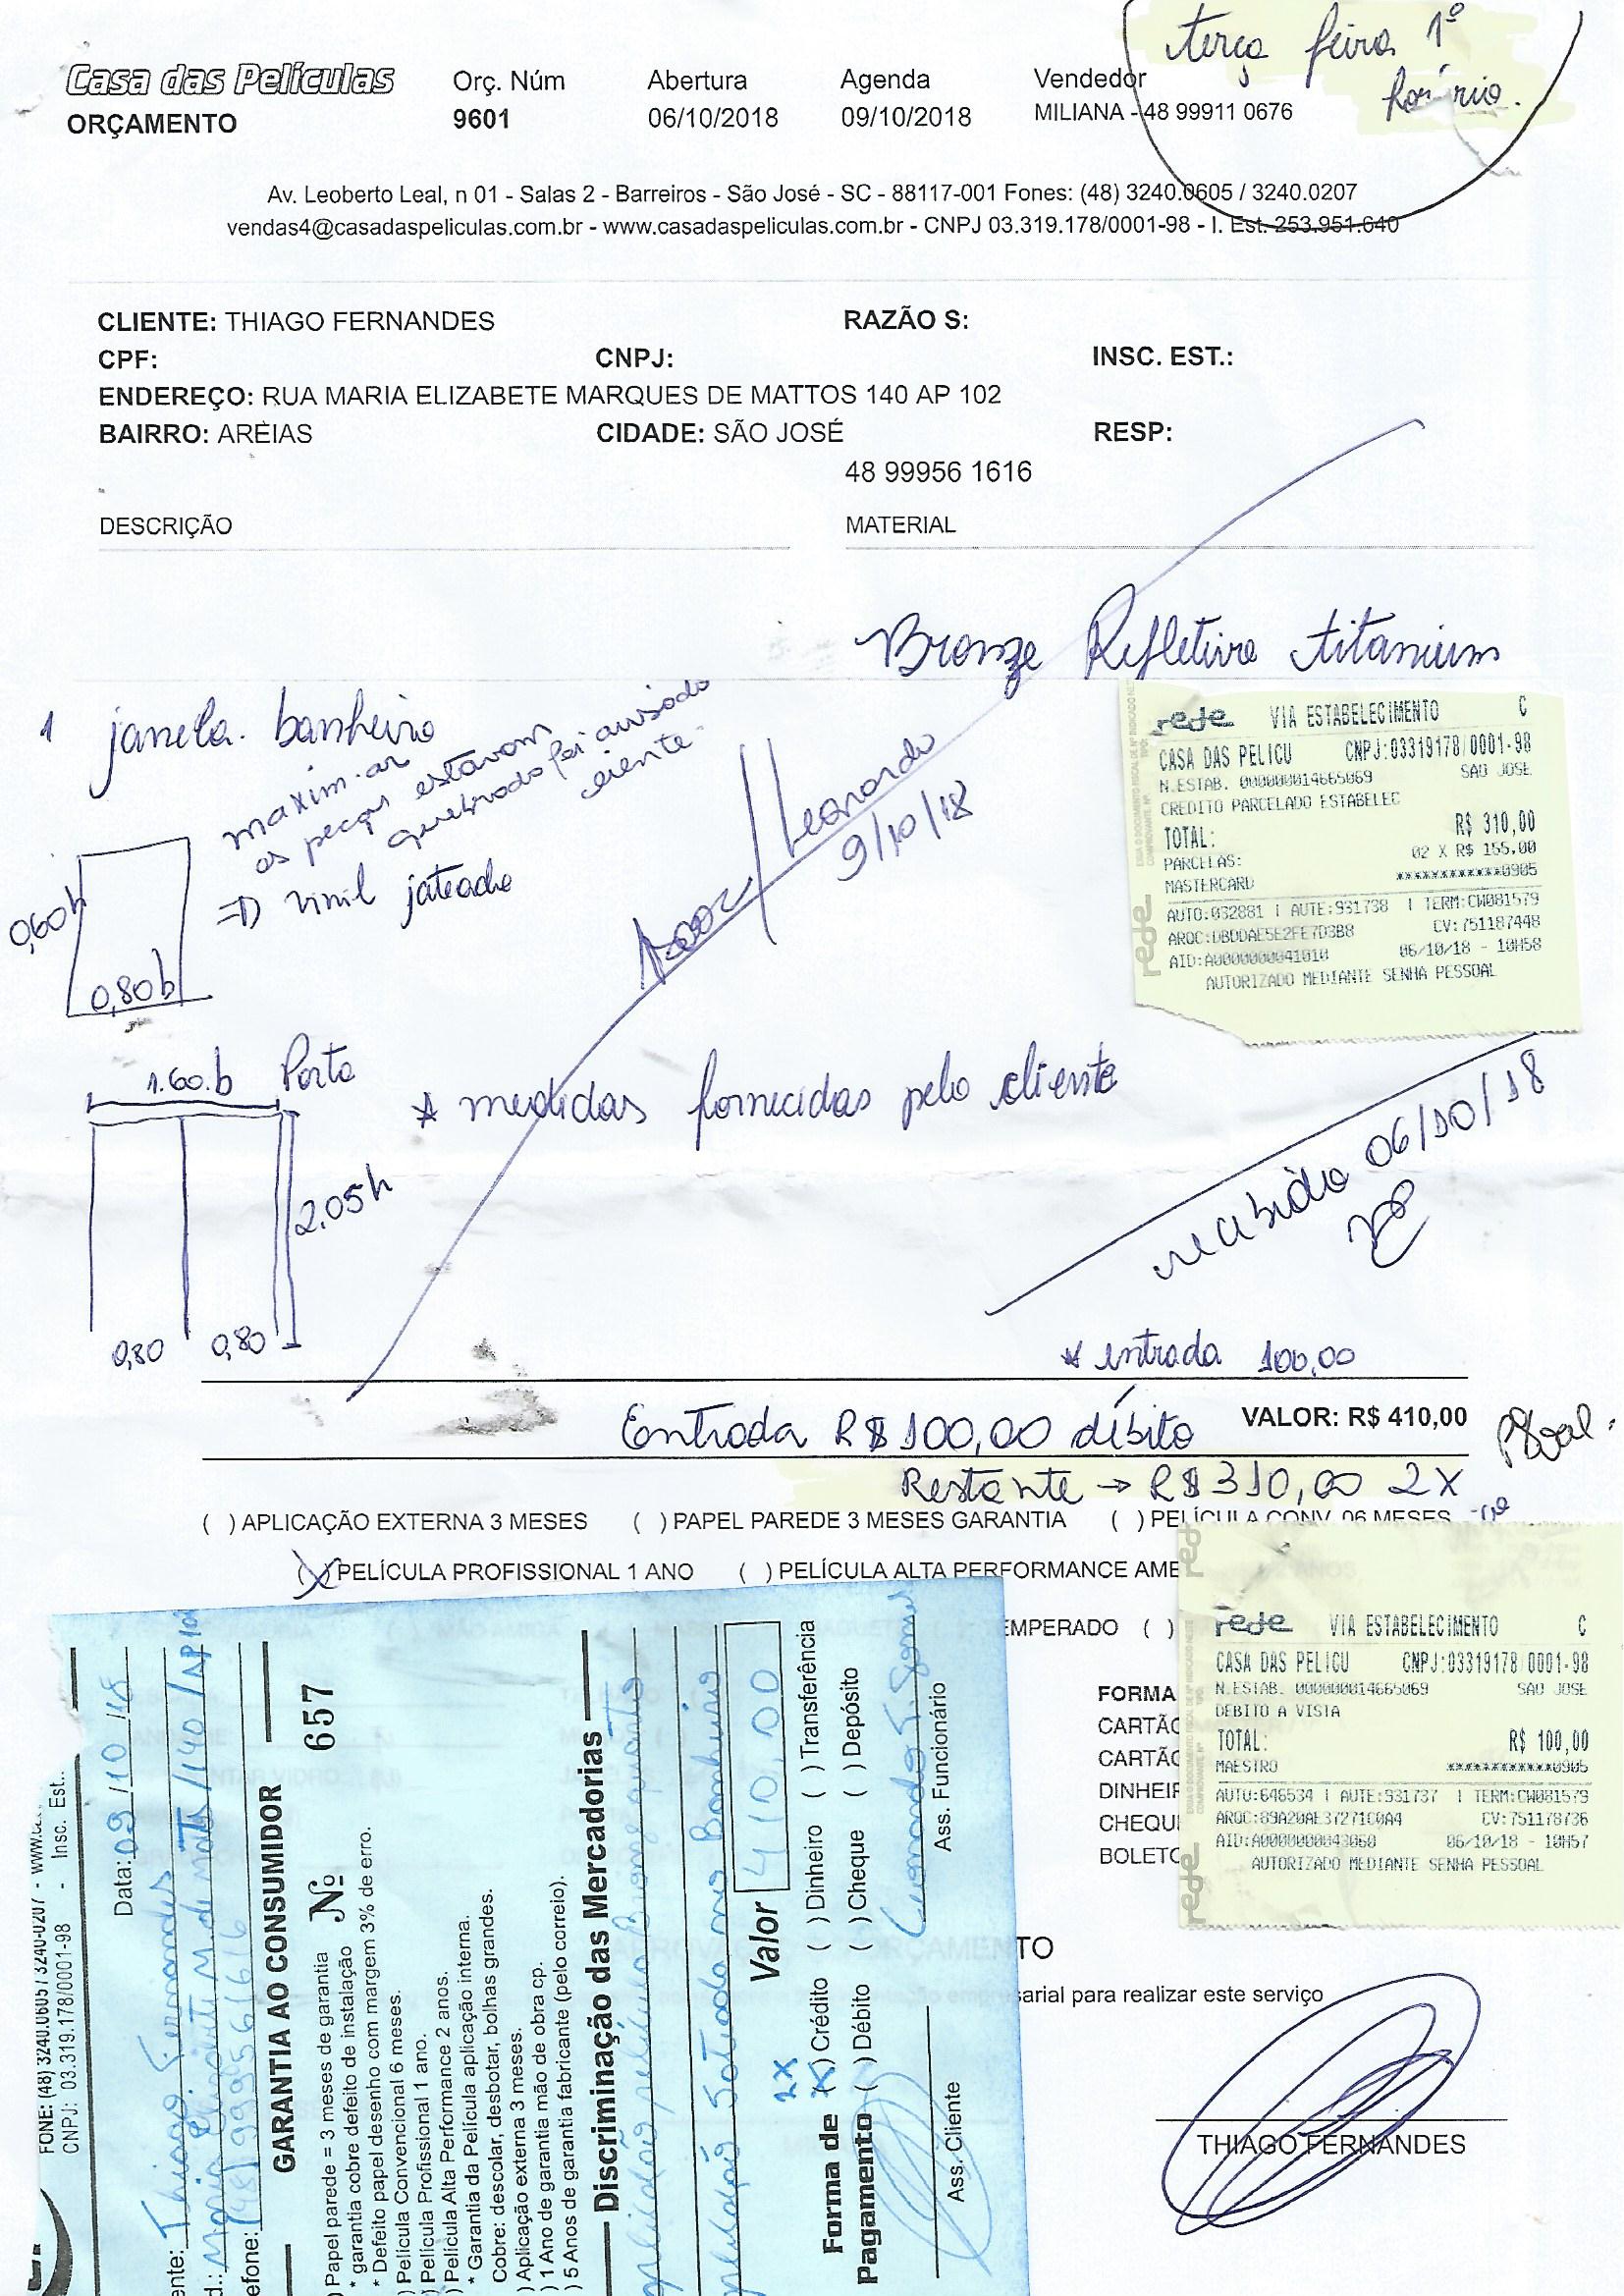 terça feira 1º
horário.
Casa das Películas
ORÇAMENTO
Orç. Núm
9601
Abertura
06/10/2018
Agenda
09/10/2018
Vendedor
MILIANA - 48 99911 0676
Av. Leoberto Leal, n 01 - Salas 2 - Barreiros - São José - SC - 88117-001 Fones: (48) 3240.0605 / 3240.0207
vendas4@casadaspeliculas.com.br - www.casadaspeliculas.com.br - CNPJ 03.319.178/0001-98 - I. Est. 253.951.640
CLIENTE: THIAGO FERNANDES
RAZÃO S:
CPF:
CNPJ:
INSC. EST.:
ENDEREÇO: RUA MARIA ELIZABETE MARQUES DE MATTOS 140 AP 102
BAIRRO: AREIAS
CIDADE: SÃO JOSÉ
RESP:
48 99956 1616
DESCRIÇÃO
MATERIAL
Bronze Refletivo titanium
1 janela banheiro
maxim-ar
as peças estavam
quebrado foi avisado
ciente.
=D vinil jateado
0,60h
0,80b
Leonardo
9/10/18
rede VIA ESTABELECIMENTO C
CASA DAS PELICU CNPJ:03319178/0001-98
N.ESTAB. 000000014665069 SAO JOSE
CREDITO PARCELADO ESTABELEC
TOTAL: R$ 310,00
PARCELAS: 02 X R$ 155,00
MASTERCARD ************0905
AUTO:032881 | AUTE:931738 | TERM:CW081579
ARQC:DBDDAE5E2FE7D3B8 CV:751187448
AID:A0000000041010 06/10/18 - 10H58
AUTORIZADO MEDIANTE SENHA PESSOAL
1.60.b Porta
* medidas fornecidas pelo cliente
2.05h
0,80 0,80
recebido 06/10/18
* entrada 100,00
Entrada R$ 100,00 débito
VALOR: R$ 410,00
Restante → R$ 310,00 2X
( ) APLICAÇÃO EXTERNA 3 MESES ( ) PAPEL PAREDE 3 MESES GARANTIA ( ) PELÍCULA CONV. 06 MESES
(X) PELÍCULA PROFISSIONAL 1 ANO ( ) PELÍCULA ALTA PERFORMANCE AME
EMPERADO ( )
FORMA
CARTÃO
CARTÃO
DINHEIR
CHEQU
BOLETO
rede VIA ESTABELECIMENTO C
CASA DAS PELICU CNPJ:03319178/0001-98
N.ESTAB. 000000014665069 SAO JOSE
DEBITO A VISTA
TOTAL: R$ 100,00
MAESTRO ************0905
AUTO:646534 | AUTE:931737 | TERM:CW081579
ARQC:89A20AE37271C0A4 CV:751178736
AID:A0000000043060 06/10/18 - 10H57
AUTORIZADO MEDIANTE SENHA PESSOAL
TO
sarial para realizar este serviço
THIAGO FERNANDES
FONE: (48) 3240.0605 / 3240-0207 - www.ca
CNPJ: 03.319.178/0001-98 - Insc. Est..
Data: 09/10/18
ente: Thiago Fernandes
d.: Maria Elizabeti M. de matts /140 /AP102
efone: (48) 999561616
GARANTIA AO CONSUMIDOR Nº 657
) Papel parede = 3 meses de garantia
* garantia cobre defeito de instalação
* Defeito papel desenho com margem 3% de erro.
) Película Convencional 6 meses.
) Película Profissional 1 ano.
) Película Alta Performance 2 anos.
* Garantia da Película aplicação interna.
Cobre: descolar, desbotar, bolhas grandes.
) Aplicação externa 3 meses.
) 1 Ano de garantia mão de obra cp.
) 5 Anos de garantia fabricante (pelo correio).
Discriminação das Mercadorias
aplicação película Bronze quarto
aplicação Jatiado no Banheiro
Valor 410,00
2X
Forma de Pagamento (X) Crédito ( ) Dinheiro ( ) Transferência
( ) Débito ( ) Cheque ( ) Depósito
Ass. Cliente
Ass. Funcionário